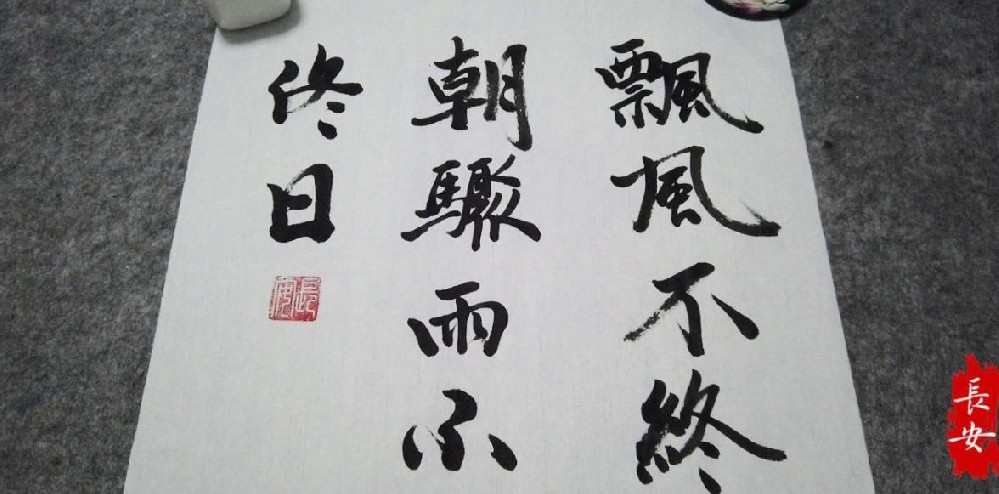 飄風不終
朝驟雨不
終日
長安
長安